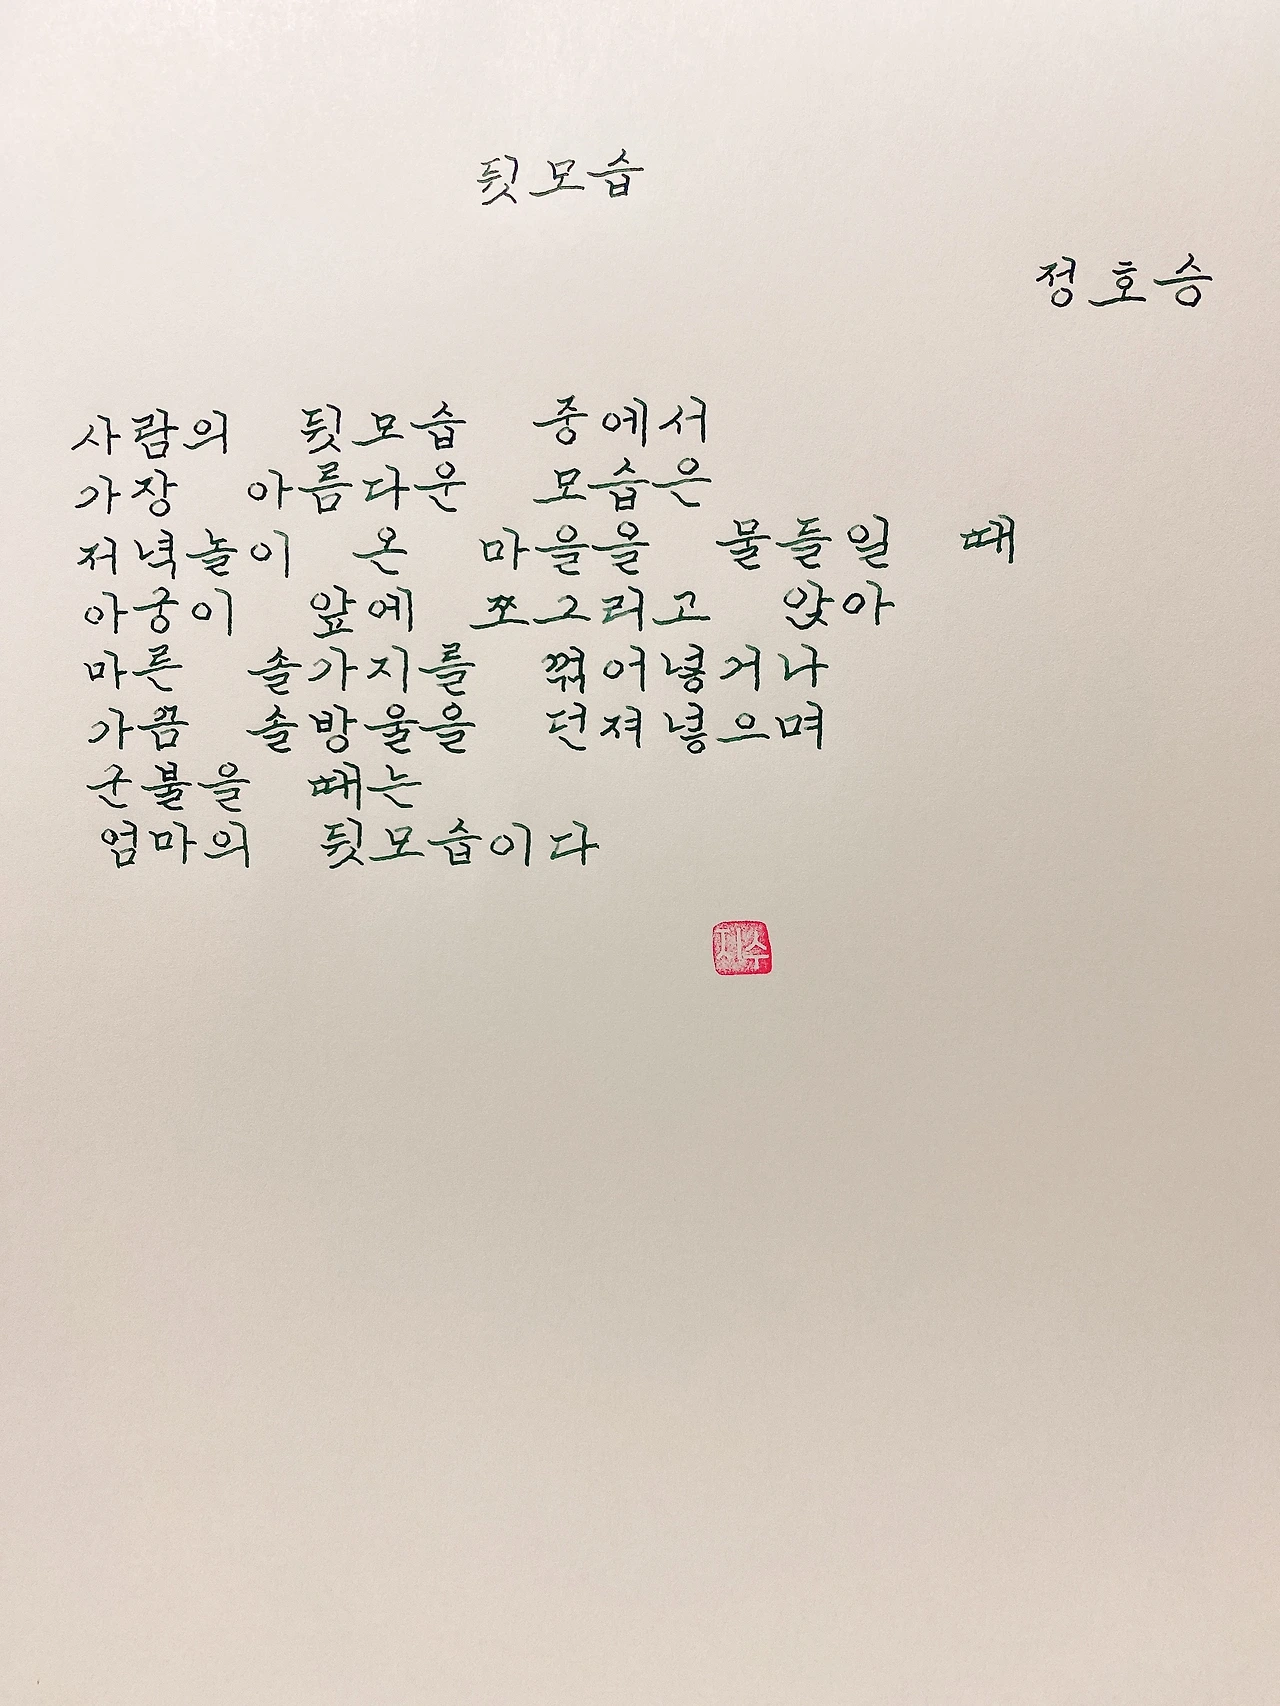 뒷모습
정호승
사람의 뒷모습 중에서
가장 아름다운 모습은
저녁놀이 온 마을을 물들일 때
아궁이 앞에 쪼그리고 앉아
마른 솔가지를 꺾어넣거나
가끔 솔방울을 던져넣으며
군불을 때는
엄마의 뒷모습이다
지수